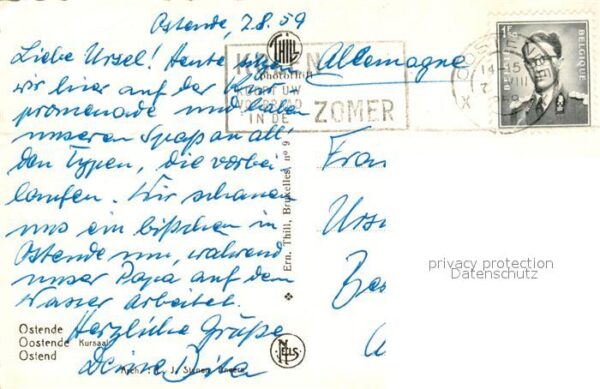 Ostende, 7.8.59
Liebe Ursel! Heute sitzen
wir hier auf der
promenade und haben
unseren Spaß an all
den Typen, die vorbei
laufen. Wir schauen
uns ein bißchen in
Ostende um, während
unser Papa auf dem
Wasser arbeitet.
Herzliche Grüße
Deine
Ostende
Oostende Kursaal
Ostend
THILL
Ern. Thill, Bruxelles, nº 9
NELS
KOOKT UW
IN DE
ZOMER
1F50
BELGIQUE
BELGIË
14-15
X
Allemagne
Frau
privacy protection
Datenschutz